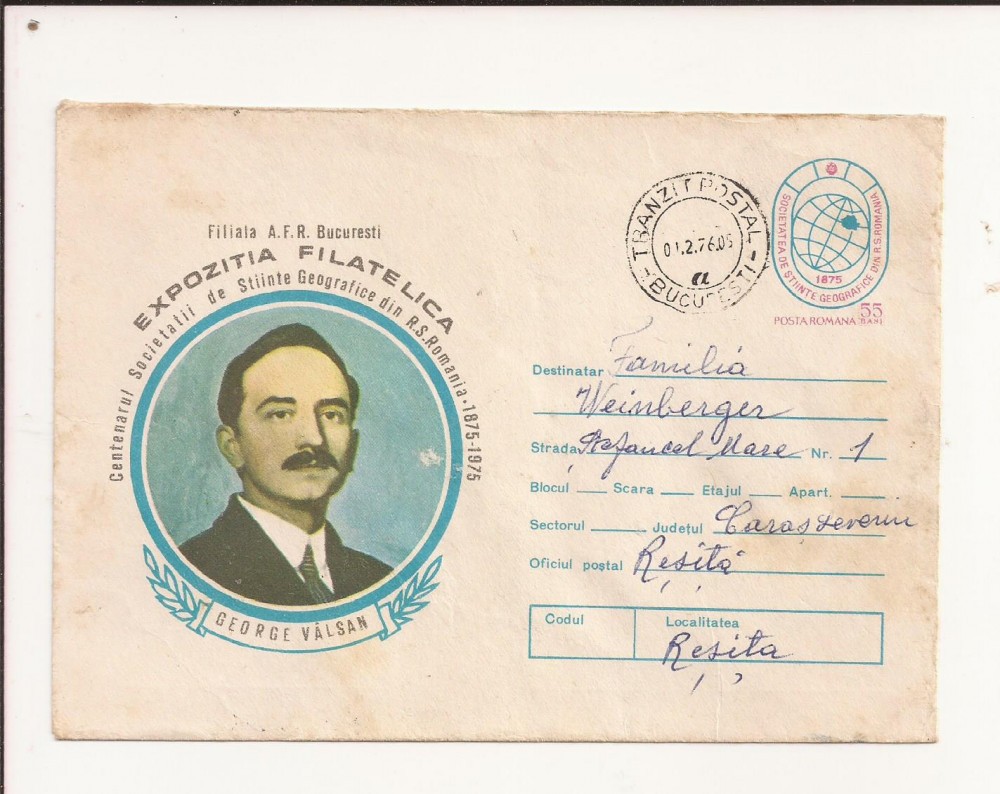 Filiala A.F.R. Bucuresti
EXPOZITIA FILATELICA
Centenarul Societatii de Stiinte Geografice din R.S.Romania.1875-1975
GEORGE VÂLSAN
TRANZIT POSTAL
01.2.76.05
a
BUCURESTI
SOCIETATEA DE STIINTE GEOGRAFICE DIN R.S.ROMANIA
1875
POSTA ROMANA 55 BANI
Destinatar Familia
Weinberger
Strada Ștefan cel Mare Nr. 1
Blocul Scara Etajul Apart.
Sectorul Județul Caraș Severin
Oficiul poștal Reșița
Codul Localitatea
Reșița